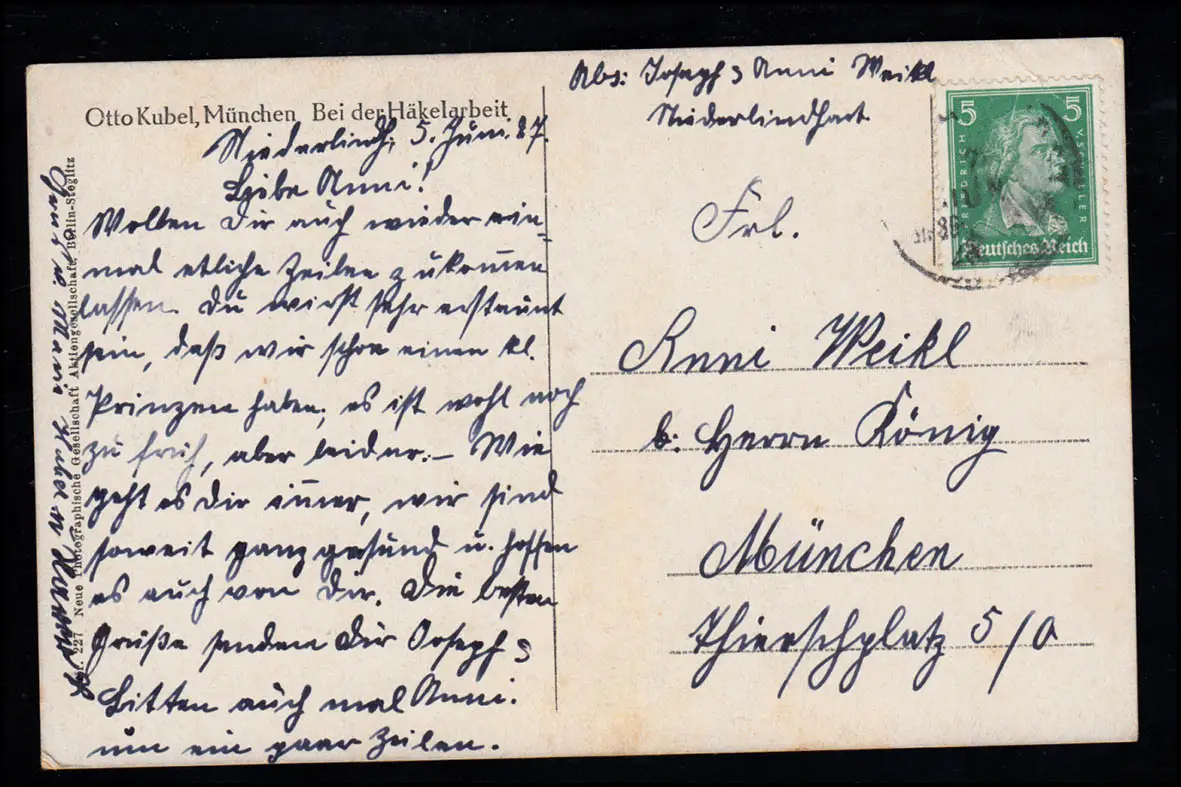 Otto Kubel, München Bei der Häkelarbeit
Niederlindh, 5. Juni. 27.
Liebe Anni!
Wollen Dir auch wieder ein-
mal etliche Zeilen zukommen
lassen. Du wirst sehr erstaunt
sein, daß wir schon einen kl.
Prinzen haben, es ist wohl noch
zu früh, aber leider. – Wie
geht es Dir immer, wir sind
soweit ganz gesund u. hoffen
es auch von Dir. Die besten
Grüße senden Dir Joseph &
Anni.
Bitten auch mal
um ein paar Zeilen.
227 Neue Photographische Gesellschaft Aktiengesellschaft, Berlin-Steglitz
Abs: Joseph & Anni Weikl
Niederlindhart
5 5
FRIEDRICH V SCHILLER
Deutsches Reich
Frl.
Anni Weikl
b. Herrn König
München
Thierschplatz 5/0